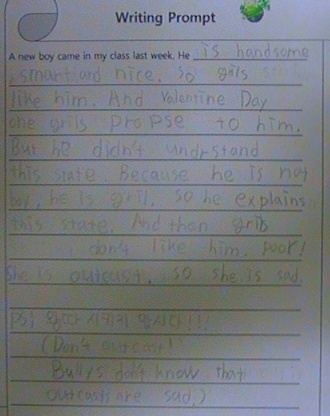 Writing Prompt
A new boy came in my class last week. He is handsome
smart and nice. So grils
like him. And Valentine Day
one grils propse to him.
But he didn't undrstand
this state. Because he is not
boy, he is gril. So he explains
this state. And then grils
don't like him. poor!
She is outcast. So she is sad.
ps; 왕따 시키지 맙시다!!!
(Don't outcast!
Bullys don't know that
outcasts are sad.)